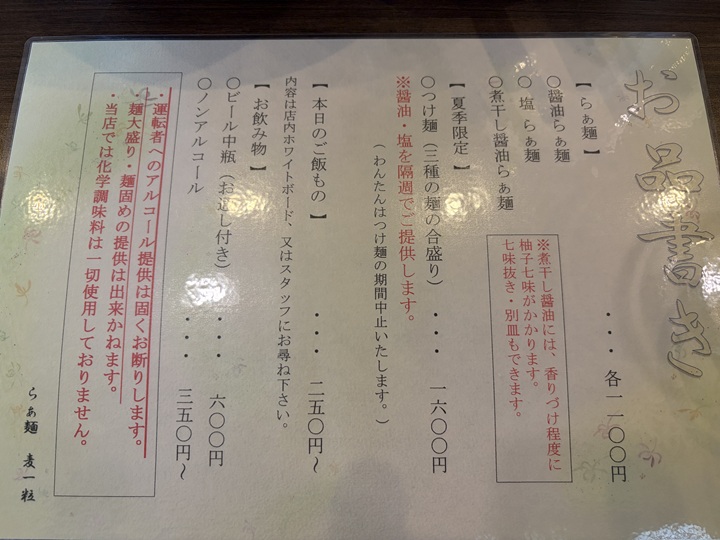 お品書き
【らぁ麺】・・・各一一〇〇円
〇醤油らぁ麺
〇塩 らぁ麺
〇煮干し醤油らぁ麺
※煮干し醤油には、香りづけ程度に
柚子七味がかかります。
七味抜き・別皿もできます。
【夏季限定】
〇つけ麺(三種の麺の合盛り)・・・一六〇〇円
※醤油・塩を隔週でご提供します。
(わんたんはつけ麺の期間中止いたします。)
【本日のご飯もの】・・・二五〇円～
内容は店内ホワイトボード、又はスタッフにお尋ね下さい。
【お飲み物】
〇ビール中瓶(お返し付き)・・・六〇〇円
〇ノンアルコール・・・三五〇円～
・運転者へのアルコール提供は固くお断りします。
・麺大盛り・麺固めの提供は出来かねます。
・当店では化学調味料は一切使用しておりません。
らぁ麺 麦一粒